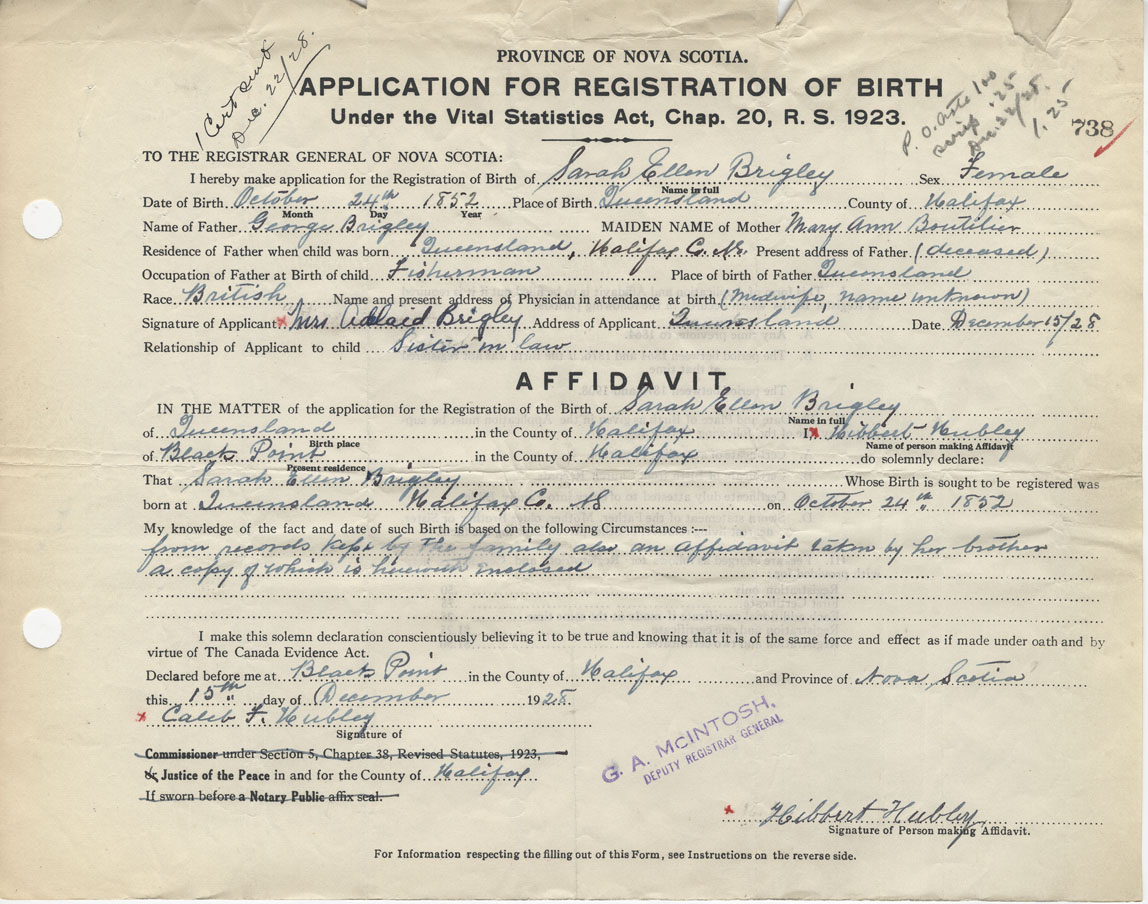 1 Cert sent
Dec. 22/28.
PROVINCE OF NOVA SCOTIA.
APPLICATION FOR REGISTRATION OF BIRTH
Under the Vital Statistics Act, Chap. 20, R. S. 1923.
P. O. Orde 1 00
scrip .25
Dec. 22/28. 1.25
738
TO THE REGISTRAR GENERAL OF NOVA SCOTIA:
I hereby make application for the Registration of Birth of Sarah Ellen Brigley Sex Female
Name in full
Date of Birth October 24th 1852 Place of Birth Queensland County of Halifax
Month Day Year
Name of Father George Brigley MAIDEN NAME of Mother Mary Ann Boutilier
Residence of Father when child was born Queensland, Halifax C. Ns. Present address of Father (deceased)
Occupation of Father at Birth of child Fisherman Place of birth of Father Queensland
Race British Name and present address of Physician in attendance at birth (Midwife, name unknown)
Signature of Applicant x Mrs Adlaid Brigley Address of Applicant Queensland Date December 15/28
Relationship of Applicant to child Sister in law
AFFIDAVIT
IN THE MATTER of the application for the Registration of the Birth of Sarah Ellen Brigley
Name in full
of Queensland in the County of Halifax I, x Hibbert Hubley
Birth place Name of person making Affidavit
of Black Point in the County of Halifax do solemnly declare:
Present residence
That Sarah Ellen Brigley Whose Birth is sought to be registered was
born at Queensland Halifax Co. NS on October 24th 1852
My knowledge of the fact and date of such Birth is based on the following Circumstances :---
from records kept by the family also an affidavit taken by her brother
a copy of which is herewith enclosed
I make this solemn declaration conscientiously believing it to be true and knowing that it is of the same force and effect as if made under oath and by
virtue of The Canada Evidence Act.
Declared before me at Black Point in the County of Halifax and Province of Nova Scotia
this 15th day of December 1928.
x Caleb F. Hubley
Signature of
Commissioner under Section 5, Chapter 38, Revised Statutes, 1923,
or Justice of the Peace in and for the County of Halifax
If sworn before a Notary Public affix seal.
G. A. McINTOSH,
DEPUTY REGISTRAR GENERAL
x Hibbert Hubley
Signature of Person making Affidavit.
For Information respecting the filling out of this Form, see Instructions on the reverse side.